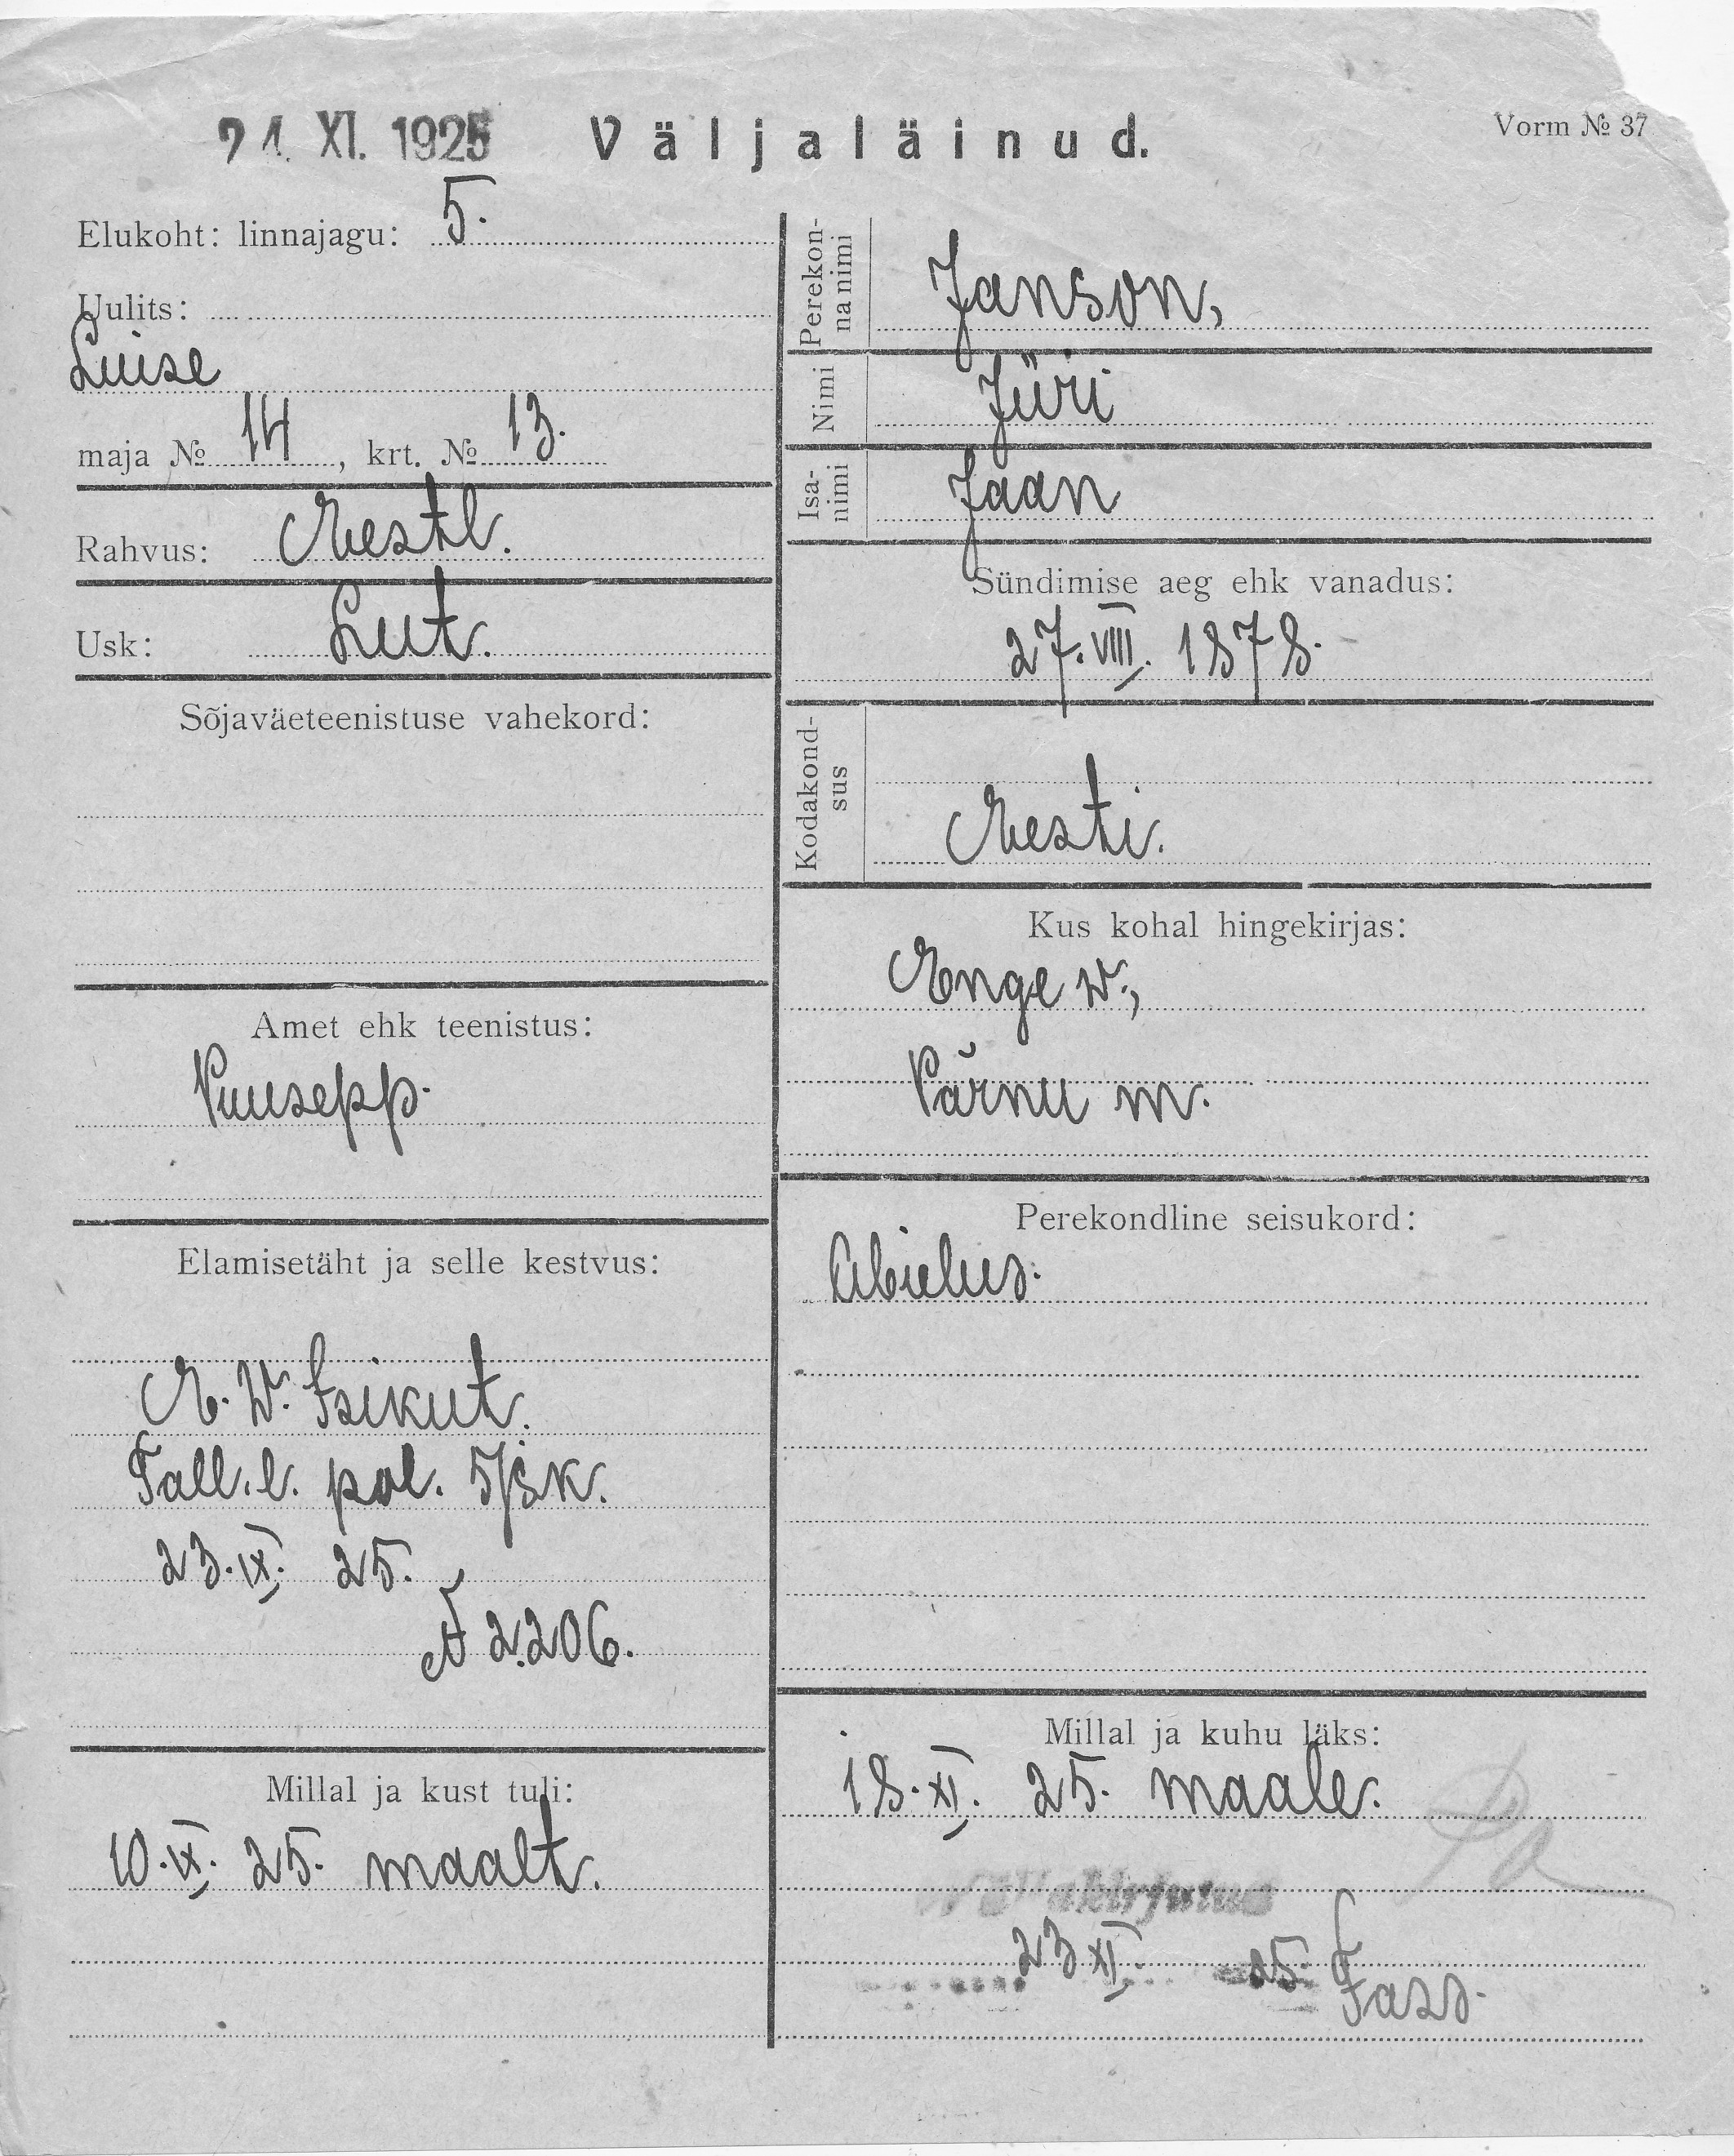 21. XI. 1925 Väljaläinud.
Vorm № 37
Elukoht: linnajagu: 5.
Uulits:
Luise
maja № 14, krt. № 13.
Rahvus: Eestl.
Usk: Lut.
Sõjaväeteenistuse vahekord:
Amet ehk teenistus:
Puusepp.
Elamisetäht ja selle kestvus:
E. W. Isikut.
Tall. l. pol. 5/jsk.
23. IX. 25.
№ 2.206.
Millal ja kust tuli:
10. IX. 25. maalt.
Perekon-
na nimi
Janson,
Nimi
Jüri
Isa-
nimi
Jaan
Sündimise aeg ehk vanadus:
27. VIII. 1878.
Kodakond-
sus
Eesti.
Kus kohal hingekirjas:
Enge w.,
Pärnu m.
Perekondline seisukord:
Abielus.
Millal ja kuhu läks:
18. XI. 25. maale.
23 XI. 25.